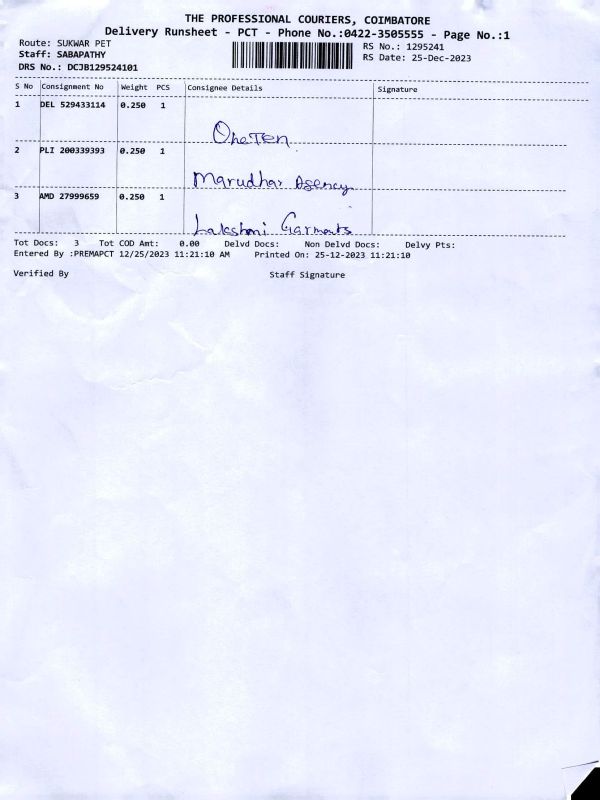 THE PROFESSIONAL COURIERS, COIMBATORE
Delivery Runsheet - PCT - Phone No.:0422-3505555 - Page No.:1
Route: SUKWAR PET
RS No.: 1295241
Staff: SABAPATHY
RS Date: 25-Dec-2023
DRS No.: DCJB129524101
S No Consignment No Weight PCS Consignee Details Signature
1 DEL 529433114 0.250 1
OneTen
2 PLI 200339393 0.250 1
Marudhar Agency
3 AMD 27999659 0.250 1
Lakshmi Garments
Tot Docs: 3 Tot COD Amt: 0.00 Delvd Docs: Non Delvd Docs: Delvy Pts:
Entered By :PREMAPCT 12/25/2023 11:21:10 AM Printed On: 25-12-2023 11:21:10
Verified By Staff Signature